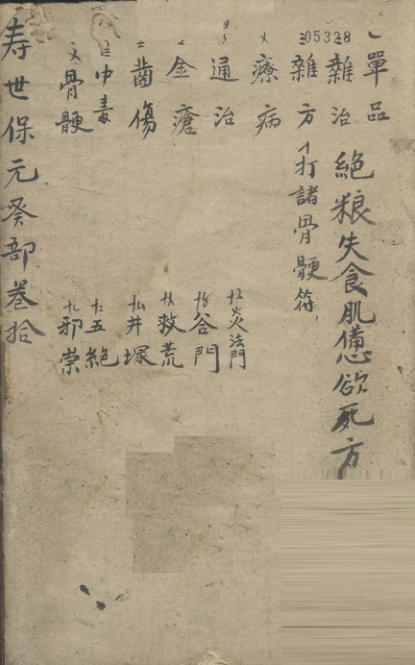 單品
05338
雜治
絶粮失食肌憊欲死方
雜方
打諸骨骾符
療病
通治
金瘡
齒傷
中毒
骨骾
灸法門
谷門
救荒
井塚
五絶
邪祟
寿世保元癸部巻拾